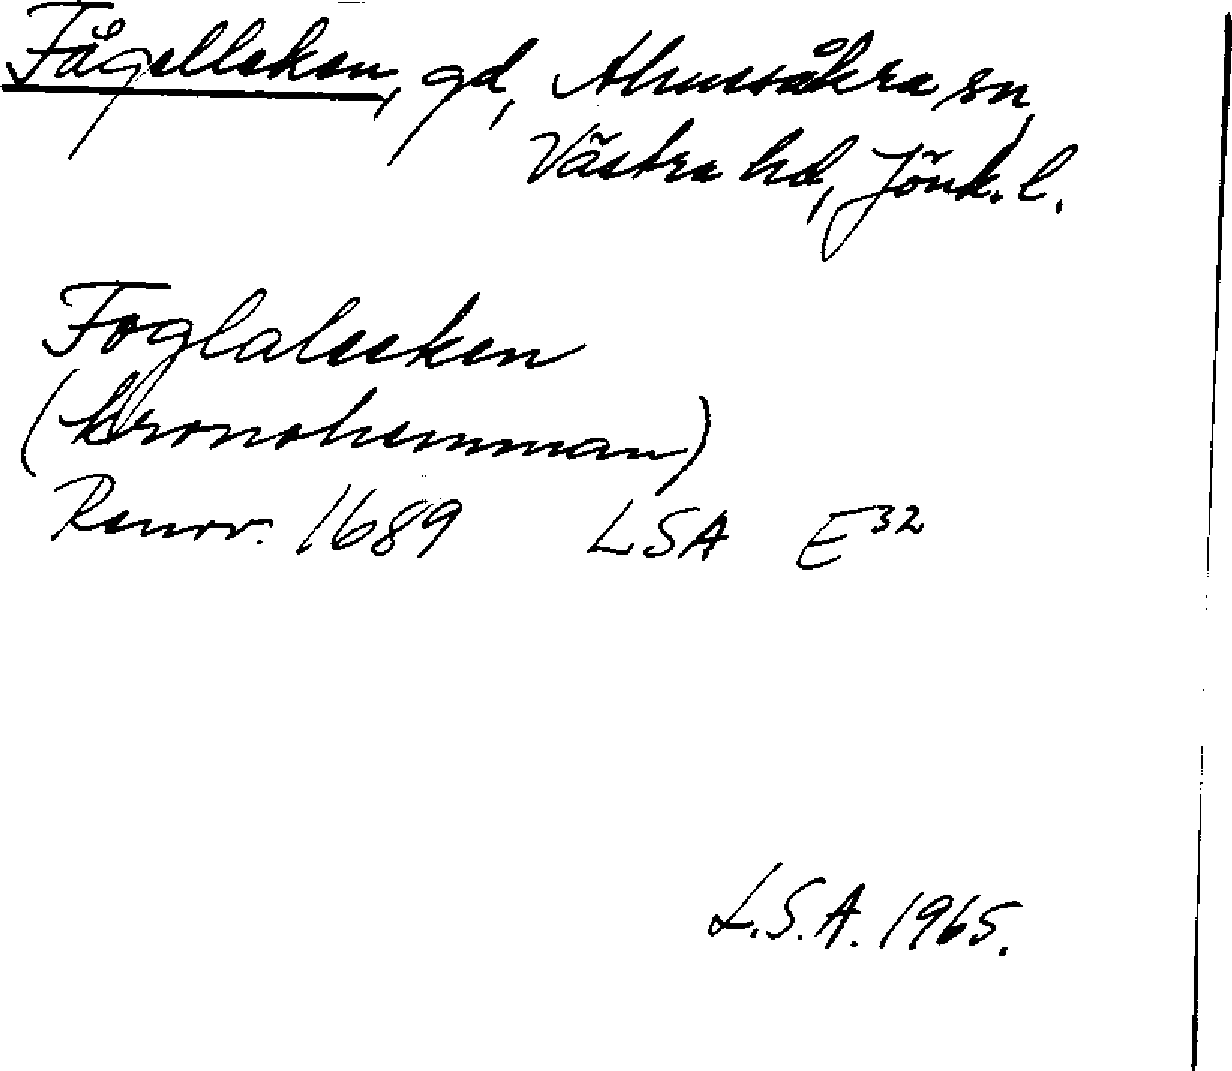 Fågelleken, gd, Almesåkra sn,
Västra hd, Jönk. l.
Foglaleeken
(kronohemman)
Renov. 1689 LSA E³²
L.S.A. 1965.